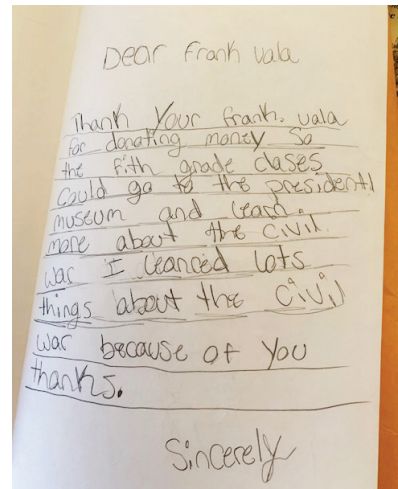 Dear Frank vala
Thank Your frank. vala
for donating money So
the fith grade clases
Could go to the presidentl
museum and learn
more about the civil.
war I learced lots
things about the civil
war because of you
thanks.
Sincerely